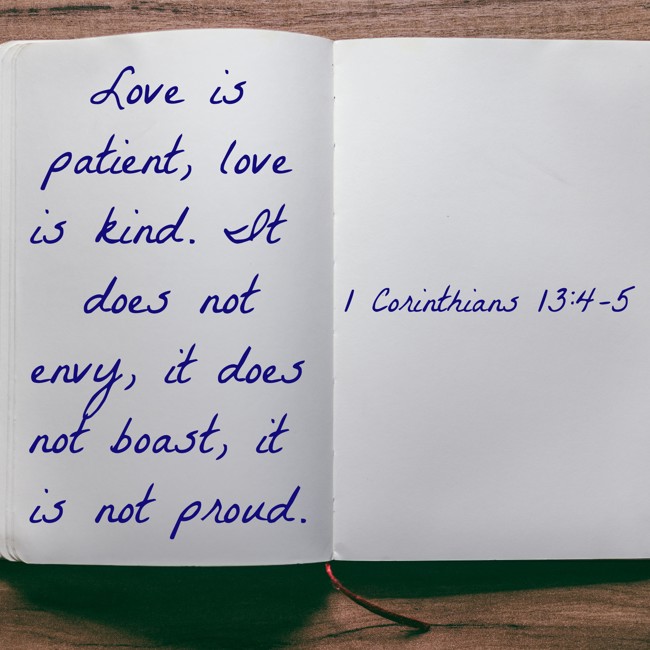 Love is
patient, love
is kind. It
does not
envy, it does
not boast, it
is not proud.
1 Corinthians 13:4-5